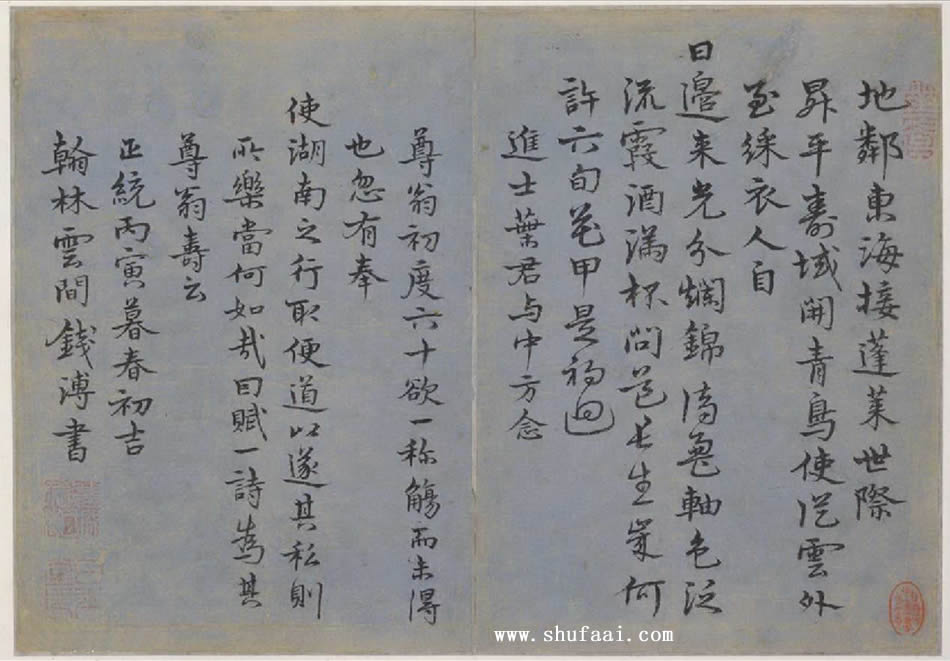 地鄰東海接蓬萊世際
昇平壽域開青鳥使從雲外
至綵衣人自
日邊來光分爛錦軸色泛
流霞酒滿杯問長生歲何
許六旬花甲是初迴
進士葉君与中方念
尊翁初度六十欲一称觴而未得
也忽有奉
使湖南之行取便道以遂其私則
所樂當何如哉因賦一詩為其
尊翁壽云
正統丙寅暮春初吉
翰林雲間錢溥書
www.shufaai.com